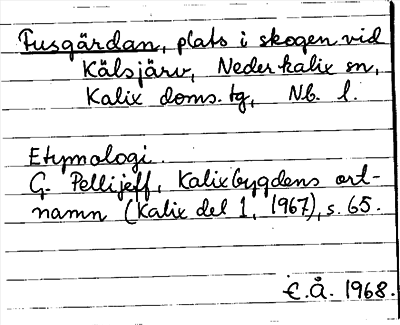 Fusgärdan, plats i skogen vid
Kälsjärv, Nederkalix sn,
Kalix doms. tg, Nb. l.
Etymologi.
G. Pellijeff, Kalixbygdens ort-
namn (Kalix del 1, 1967), s. 65.
E.Å. 1968.